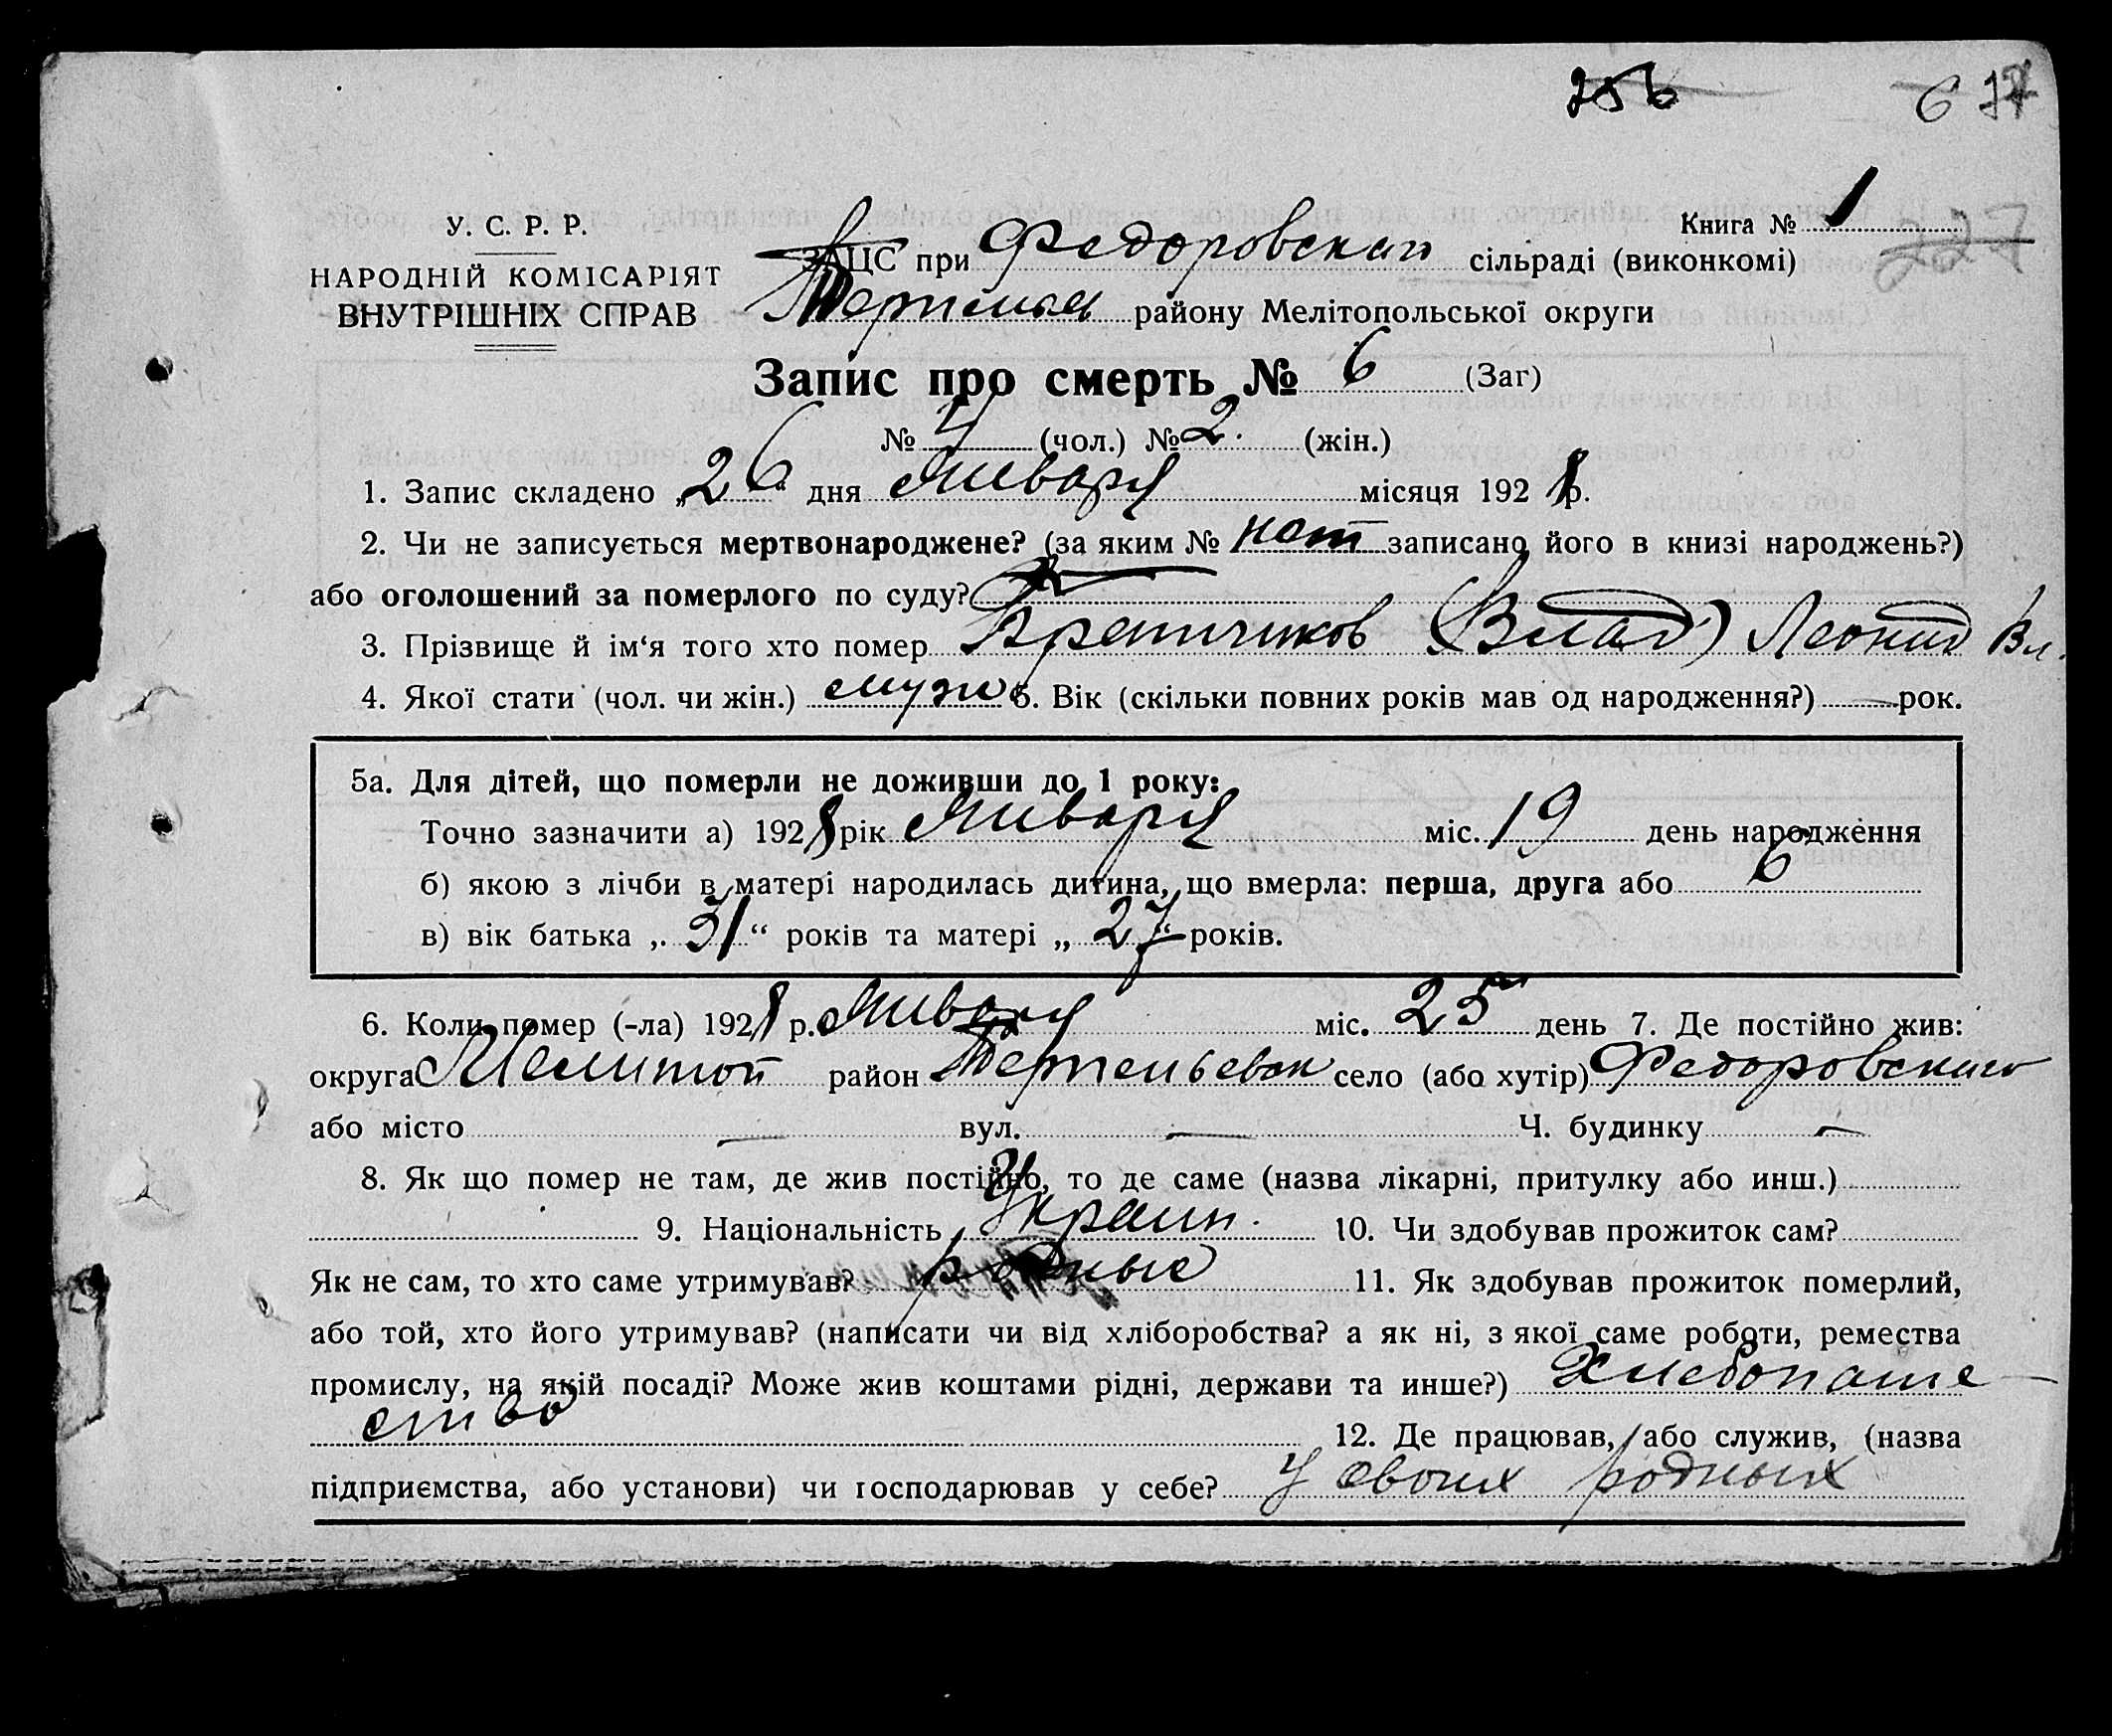 256 6
Книга № 1
227
У. С. Р. Р.
НАРОДНІЙ КОМІСАРІЯТ
ВНУТРІШНІХ СПРАВ
ЗАЦС при Федоровской сільраді (виконкомі)
району Мелітопольської округи
Запис про смерть № 6 (Заг)
№ 4 (чол.) № 2. (жін.)
1. Запис складено „26“ дня Января місяця 1928 р.
2. Чи не записується мертвонароджене? (за яким № нет записано його в книзі народжень?)
або оголошений за померлого по суду?
3. Прізвище й ім‘я того хто помер (Влад) Леонид Вл.
4. Якої стати (чол. чи жін.) муж 5. Вік (скільки повних років мав од народження?) — рок.
5а. Для дітей, що померли не доживши до 1 року:
Точно зазначити а) 1928 рік Января міс. 19 день народження
б) якою з лічби в матері народилась дитина, що вмерла: перша, друга або 6
в) вік батька „31“ років та матері „27“ років.
6. Коли помер (-ла) 1928 р. Января міс. 25 день 7. Де постійно жив:
округа Мелитоп район село (або хутір) Федоровского
або місто — вул. — Ч. будинку —
8. Як що помер не там, де жив постійно, то де саме (назва лікарні, притулку або инш.)
9. Національність Украин. 10. Чи здобував прожиток сам?
Як не сам, то хто саме утримував? родные 11. Як здобував прожиток померлий,
або той, хто його утримував? (написати чи від хліборобства? а як ні, з якої саме роботи, ремества
промислу, на якій посаді? Може жив коштами рідні, держави та инше?) Хлебопаше-
ство
12. Де працював, або служив, (назва
підприємства, або установи) чи господарював у себе? У своих родных